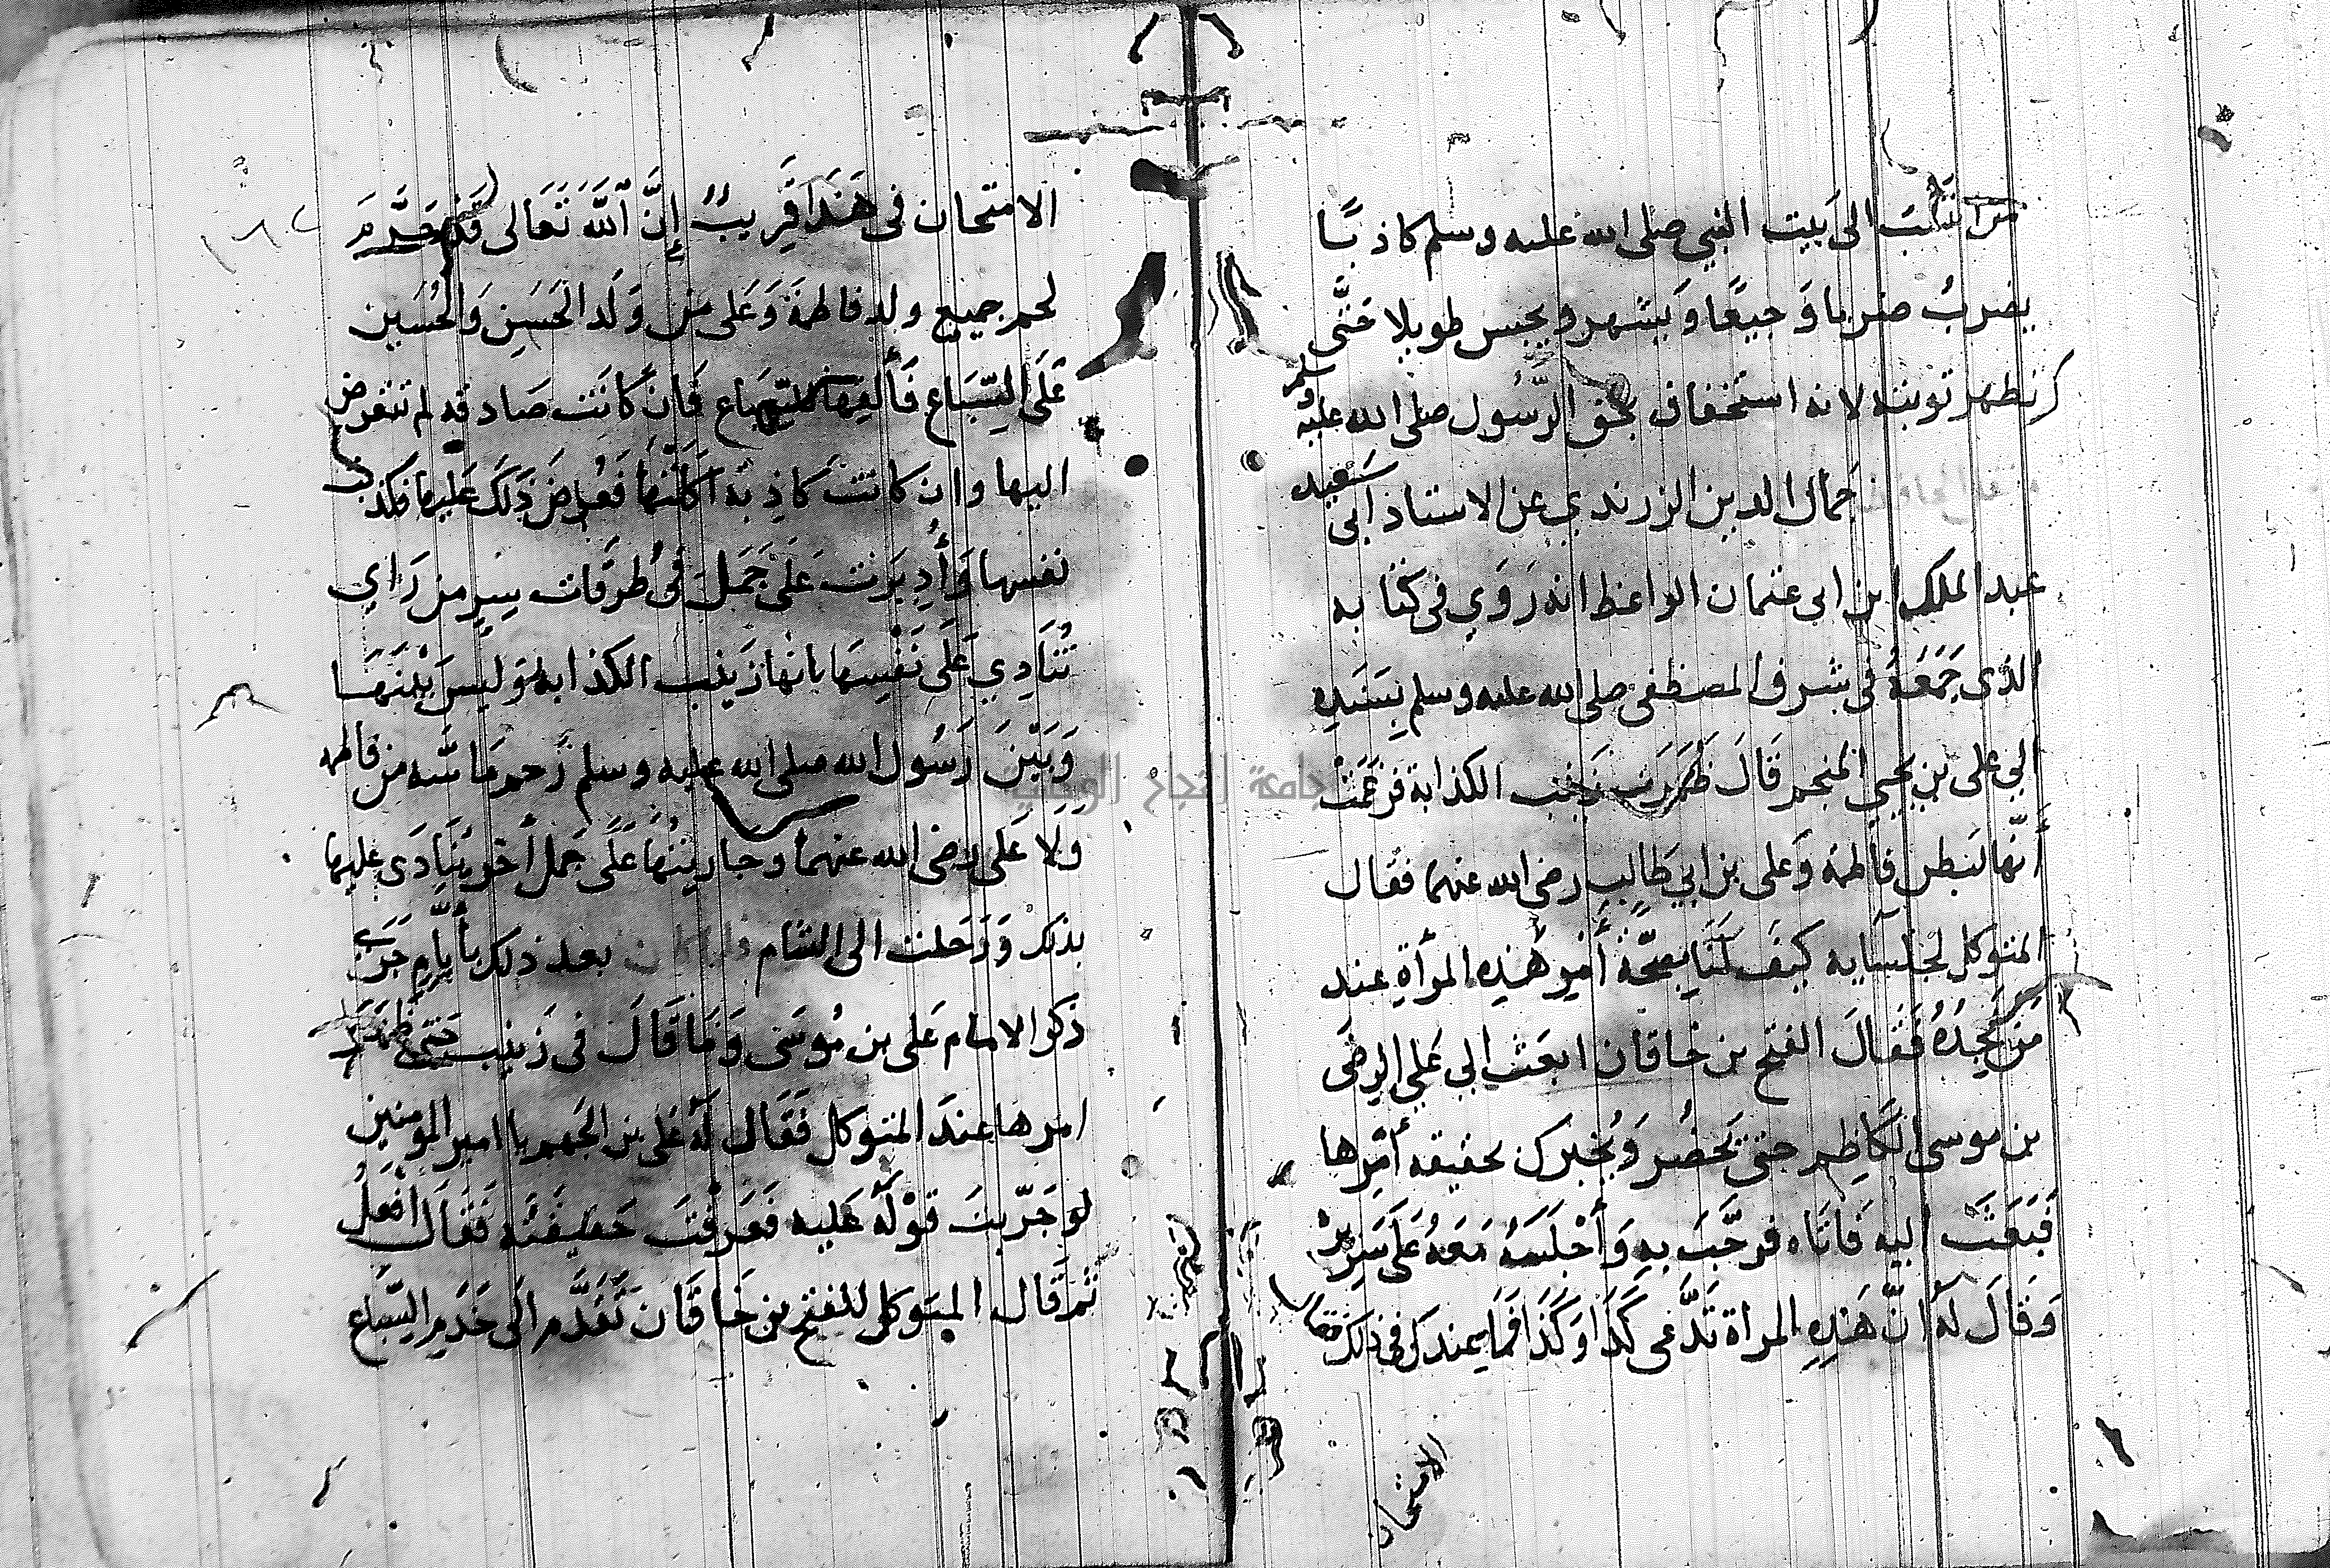 من انتسب الى بيت النبي صلى الله عليه وسلم كاذبًا
يضربُ ضربا وَجيعًا وَيشهر ويحبس طويلا حَتَّى
يظهر توبته لانه استخفاف بحق الرَّسُول صلى الله عليه وسلم
جَمال الدين الزرندي عن الاستاذ ابى سَعيد
عبد الملك ابن ابى عثمان الواعظ انه رَوَي فى كتابه
الذى جَمَعَهُ فى شرف المصطفى صلى الله عليه وسلم بِسَنَدِه
الي على بن يحيي المنجم قَالَ ظهَرَت زَينب الكذابة فزعَمَتْ
أنّها لبطن فاطمة وَعلى بن ابي طَالِب رضى الله عنهما فقال
المتوكل لجلسآيه كيفَ لنَا بصحَّة أمْرِ هٰذِه المرأةِ عند
مَن نجِدُهُ فَقالَ الفتح بن خاقان ابعَث الي عَلي الرضَى
بن موسى الكَاظِم حتى يَحضُر وَيُخبرك بحقيقه أمْرِها
فَبَعَثَ اليه فَاتَاه فرحَّبَ بهِ وَأجْلَسَهُ مَعَهُ عَلَى سَرِيره
وَقَالَ لهُ انَّ هَذِهِ المراة تَدَّعى كَذَا وَكَذَا فَمَا عِندك فى ذلك فقال
الامتحان
الامتحان فى هَذَا قَرِيبٌ إنَّ اللّه تَعَالى قَد حَرَّمَ
لحم جميع ولد فاطمَة وَعَلى مَن وَلَد الحَسَنِ وَالحُسَين
عَلَى السِّبَاع فَألقها للسّبَاع فَان كانَت صَادقه لم تتعرض
اليها وان كانت كَاذِبَة أكَلَتهَا فَعُرِضَ ذَلكَ عَليها فكذبت
نفسها وَأُدِيرَت عَلَى جَمَل فى طُرقَات سر من رَاي
تُنَادِي عَلَى نَفْسِهَا بانها زَينب الكذابة وَليسَ بَيْنَهَا
وَبَيْنَ رَسُول الله صلى الله عليه وسلم رَحم مَاسَّه من فاطمه
وَلا عَلى رضى الله عنهما وجاريتهَا عَلَى جمل آخر يُنَادَى عليها
بذلك وَرَحلت الى الشام فلما كان بعد ذلك بأيّامٍ جَرَى
ذكر الامام عَلى بن مُوسَى وَمَا قَالَ فى زَينب حتى ظهَرَ
امرها عندَ المتوكل فَقَال لَهُ عَلى بن الجَهم يا امير المومنين
لو جَرّبتَ قوْلَهُ عَليه فَعَرفتَ حَقيقَتَه فَقَالَ افعَلُ
ثم قَال المتوكل للفتح بن خَاقَان تَقَدَّم الَى خَدَمِ السّبَاع